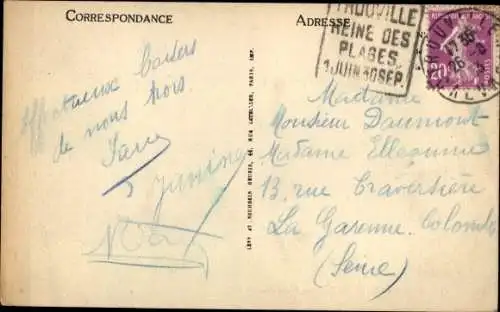 CORRESPONDANCE
ADRESSE
TROUVILLE
REINE DES
PLAGES
1 JUIN 30 SEP.
20
Affectueux baisers
de nous trois.
Janine
LEVY ET NEURDEIN RÉUNIS, 44, RUE LETELLIER, PARIS, IMP.
Madame
Monsieur Daumont
Madame
13, rue Traversière
La Garenne. Colombes
(Seine)